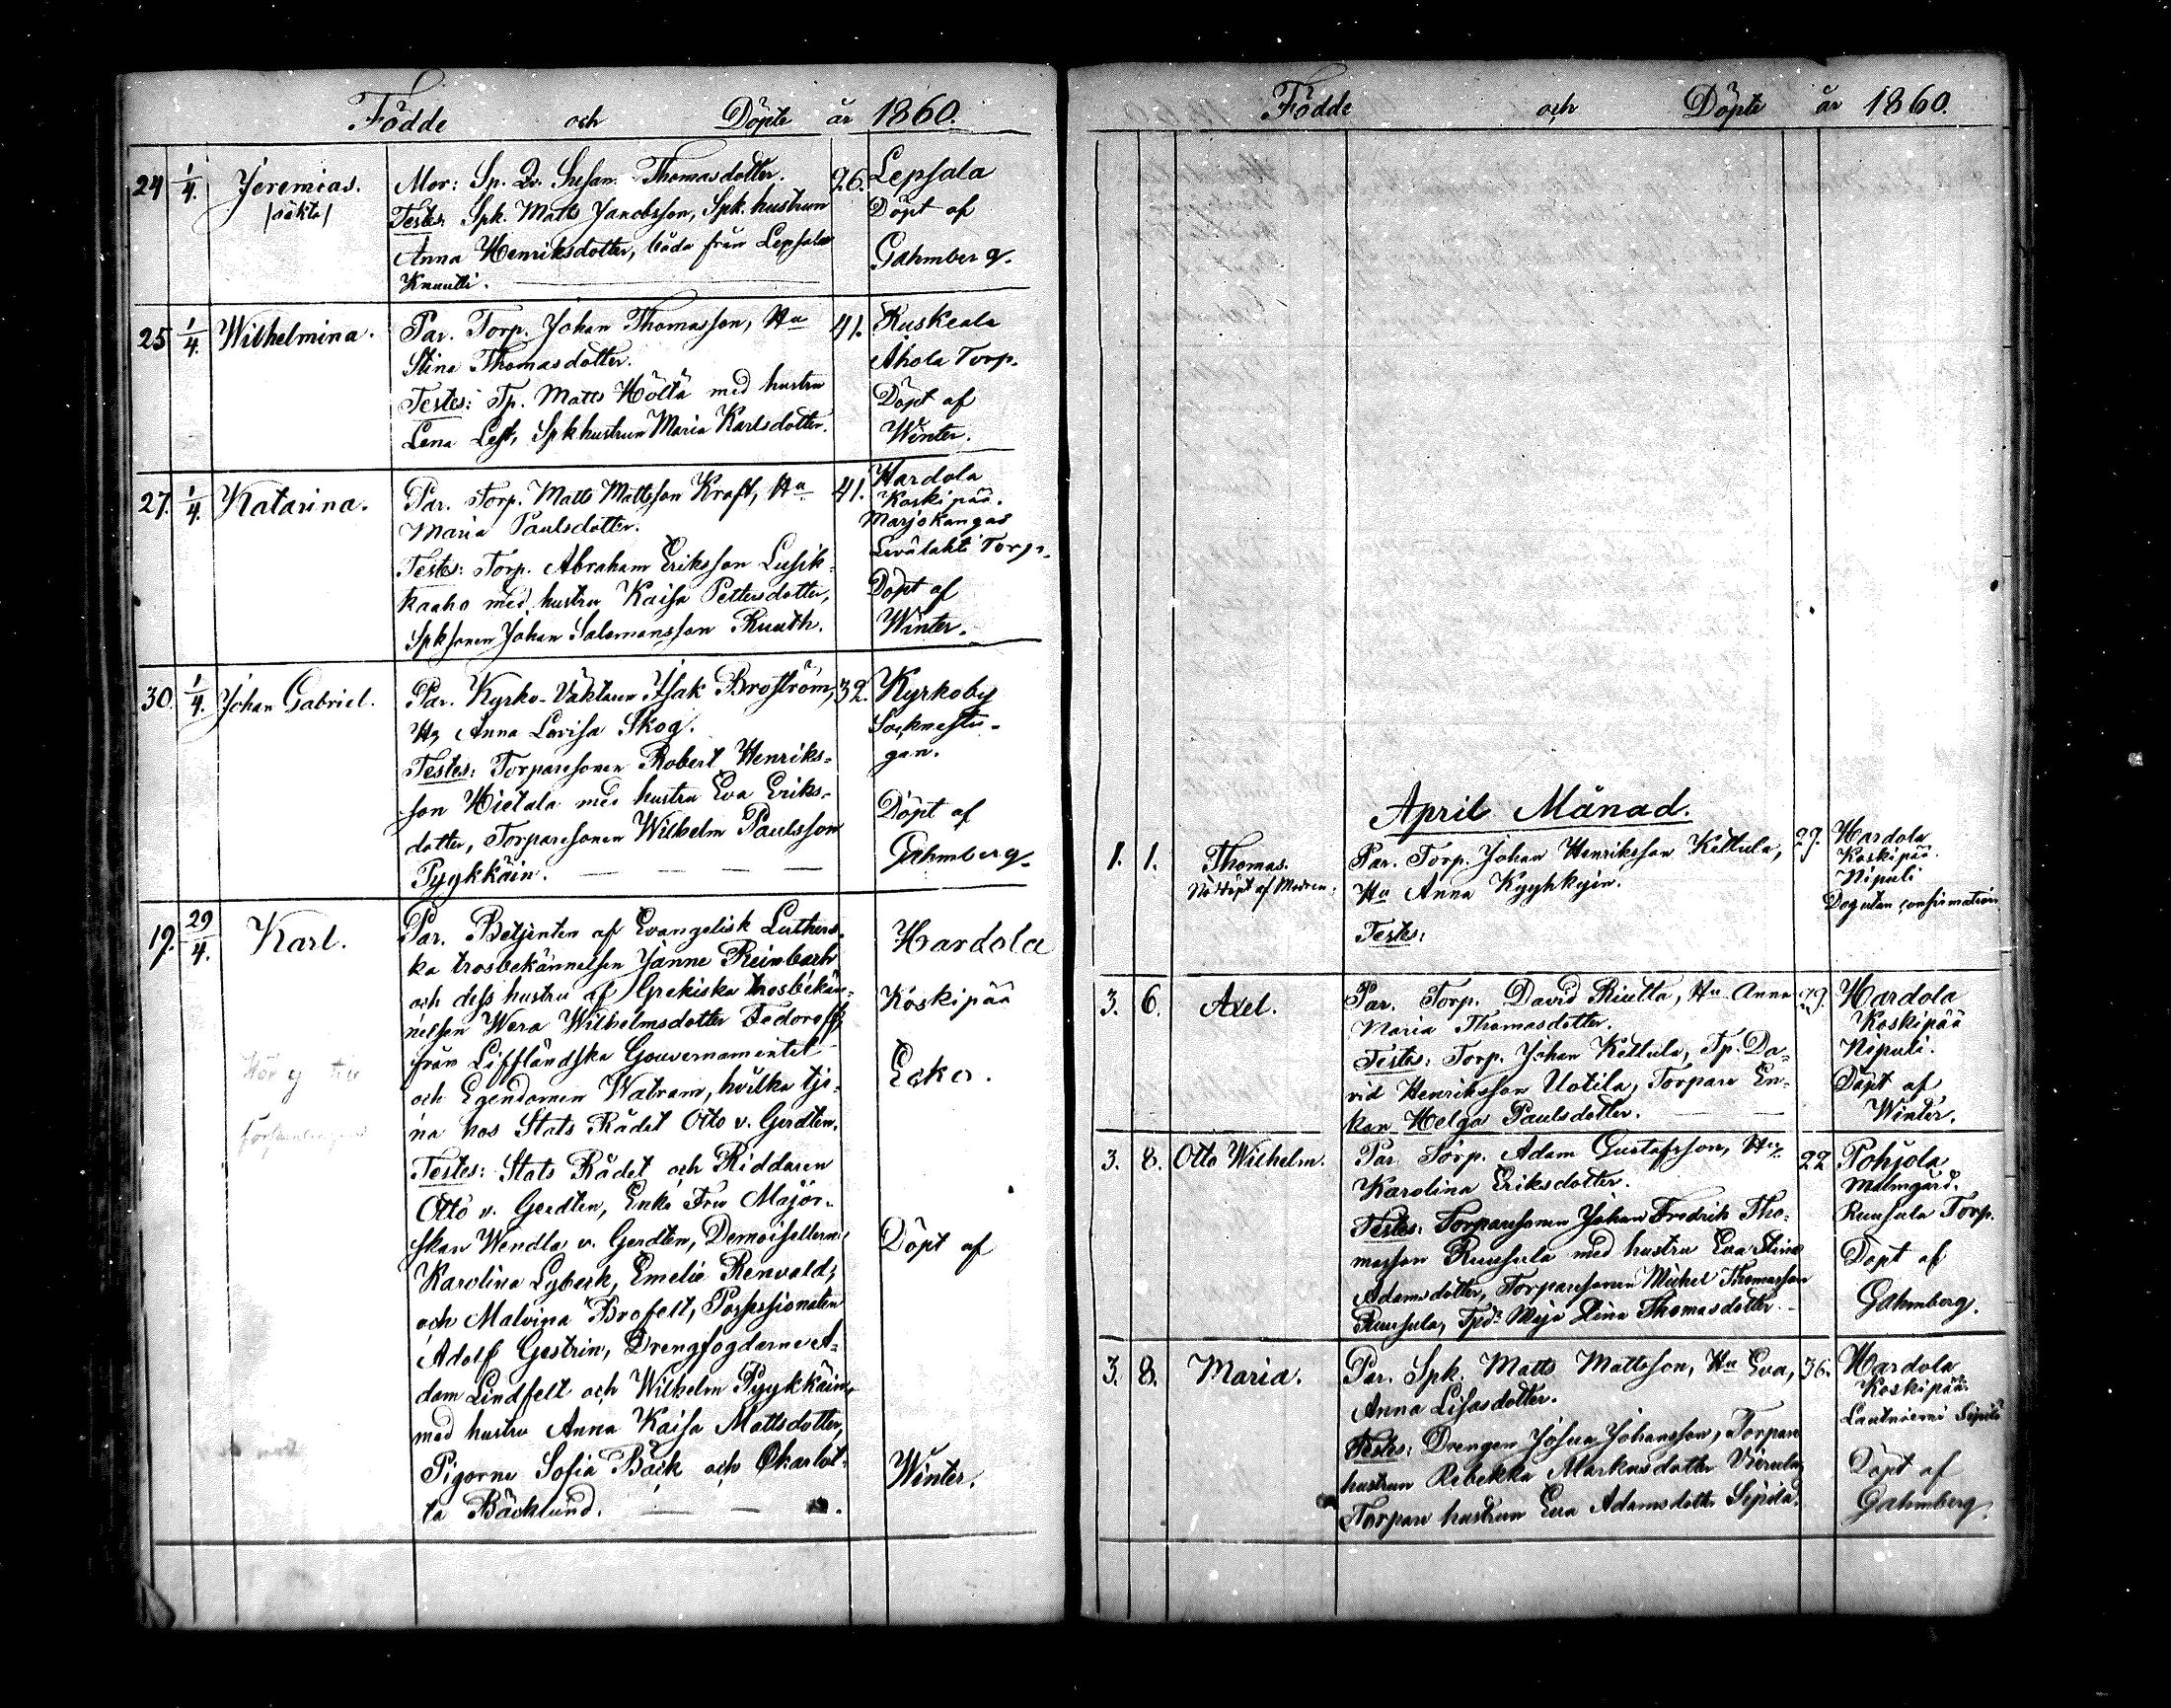 Födde och Döpte år 1860.
24 1/4. Jeremias. Mor: Sp. Dr. Susan. Thomasdotter. 26. Lepsala
/oäkta/ Testes: Spk. Matts Jacobsson, Spk. hustrun Döpt af
Anna Henriksdotter, båda från Lepsala Gahmberg.
Knuutti.
25 1/4. Wilhelmina. Par. Torp. Johan Thomasson, Hu 41. Ruskeala
Stina Thomasdotter. Ahola Torp.
Testes: Tp. Matts Höltä med hustru Döpt af
Lena Lest, Spkhustrun Maria Karlsdotter. Winter.
27. 1/4. Katarina. Par. Torp. Matts Mattsson Kraft, Hu 41. Hardola
Maria Paulsdotter. Koskipää.
Marjokangas
Testes: Torp. Abraham Eriksson Lusik- Levälahti Torp.
kaaho med hustru Kaisa Pettersdotter, Döpt af
Spksonen Johan Salomonsson Ruuth. Winter.
30. 1/4. Johan Gabriel. Par. Kyrko-Väktaren Isak Broström, 32. Kyrkoby
Hu Anna Lovisa Skog. Socknestu-
Testes: Torparesonen Robert Henriks- gan.
son Hietala med hustru Eva Eriks-
dotter, Torparesonen Wilhelm Paulsson Döpt af
Pyykkäin. Gahmberg.
19. 29/4. Karl. Par. Betjenten af Evangelisk Luthers- Hardola
ka trosbekännelsen Janne Reinbach
och dess hustru af Grekiska trosbekän- Koskipää
nelsen Wera Wilhelmsdotter Fedoroff
från Liffländska Gouvernamentet Ecko.
och Egendomen Watram, hvilka tje-
na hos Stats Rådet Otto v. Gerdten.
Testes: Stats Rådet och Riddaren
Otto v. Gerdten, Enke Fru Major-
skan Wendla v. Gerdten, Demoisellerne Döpt af
Karolina Lybeck, Emelie Renvald,
och Malvina Brofelt, Possessionaten
Adolf Gestrin, Drengfogdarne A-
dam Lindfelt och Wilhelm Pyykkäin
med hustru Anna Kaisa Mattsdotter,
Pigorne Sofia Bäck och Charlot- Winter.
ta Bäcklund.
Födde och Döpte år 1860.
April Månad.
1. 1. Thomas. Par. Torp. Johan Henriksson Kettula, 29. Hardola
Nöddöpt af Modren. Hu Anna Kyyhkyin. Koskipää.
Nipuli
Testes: Dog utan confirmation
3. 6. Axel. Par. Torp. David Riutta, Hu Anna 29. Hardola
Maria Thomasdotter. Koskipää
Testes: Torp. Johan Kettula, Tp. Da- Nipuli.
vid Henriksson Uotila, Torpare En- Döpt af
kan Helga Paulsdotter. Winter.
3. 8. Otto Wilhelm. Par. Torp. Adam Gustafsson, Hu 22 Pohjola
Karolina Eriksdotter. Malmgård.
Testes: Torparesonen Johan Fredrik Tho- Ruusula Torp.
masson Ruusula med hustru Eva Stina Döpt af
Adamsdotter, Torparesonen Michel Thomasson
Ruusula, Tpdr Maja Stina Thomasdotter. Gahmberg.
3. 8. Maria. Par. Spk. Matts Mattsson, Hu Eva, 36. Hardola
Anna Lisasdotter. Koskipää
Testes: Drengen Josua Johansson, Torpare
hustrun Rebekka Markusdotter Vierula, Döpt af
Torpare hustrun Eva Adamsdotter Sipilä. Gahmberg.